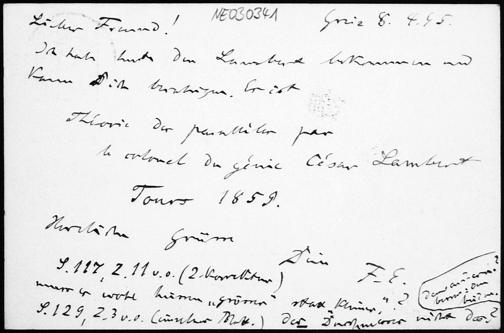 NE030341
Lieber Freund! Graz 8. 4. 95.
Ich habe heute den Lambert bekommen und
kann Dich beruhigen. Er ist
Théorie des parallèles par
le colonel du génie César Lambert
Tours 1859.
Herzliche Grüsse
Dein
F. E.
S. 117, Z. 11 v. o. (2. Korrektur)
muss es wohl heissen „grösser" statt kleiner"?
S. 129, Z. 3 v. o. Der Durchmesser nicht